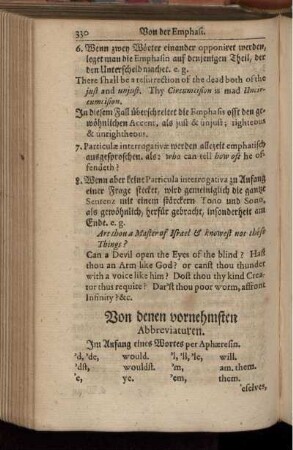 330 Von der Emphasi.
6. Wenn zwey Wörter einander opponiret werden,
leget man die Emphasin auf denjenigen Theil, der
den Unterscheid machet. e. g.
There shall be a resurrection of the dead both of the
just and unjust. Thy Circumcision is mad Uncir-
cumcision.
In diesem Fall überschreitet die Emphasis offt den ge-
wöhnlichen Accent, als just & unjust; righteous
& unrighteous.
7. Particulæ interrogativæ werden allezeit emphatisch
ausgesprochen, als: who can tell how oft he of-
fendeth?
8. Wenn aber keine Particula interrogativa zu Anfang
einer Frage stecket, wird gemeiniglich die gantze
Sentenz mit einem stärckern Tono und Sono,
als gewöhnlich, herfür gebracht, insonderheit am
Ende. e. g.
Art thou a Master of Israel & knowest not these
Things?
Can a Devil open the Eyes of the blind? Hast
thou an Arm like God? or canst thou thunder
with a voice like him? Dost thou thy kind Crea-
tur thus requite? Dar'st thou poor worm, affront
Infinity? &c.
Von denen vornehmsten
Abbreviaturen.
Im Anfang eines Wortes per Aphæresin.
'd, 'de, would. 'l, 'll, 'le, will.
'dst, wouldst. 'm, am. them.
'e, ye. 'em, them.
'eselves,